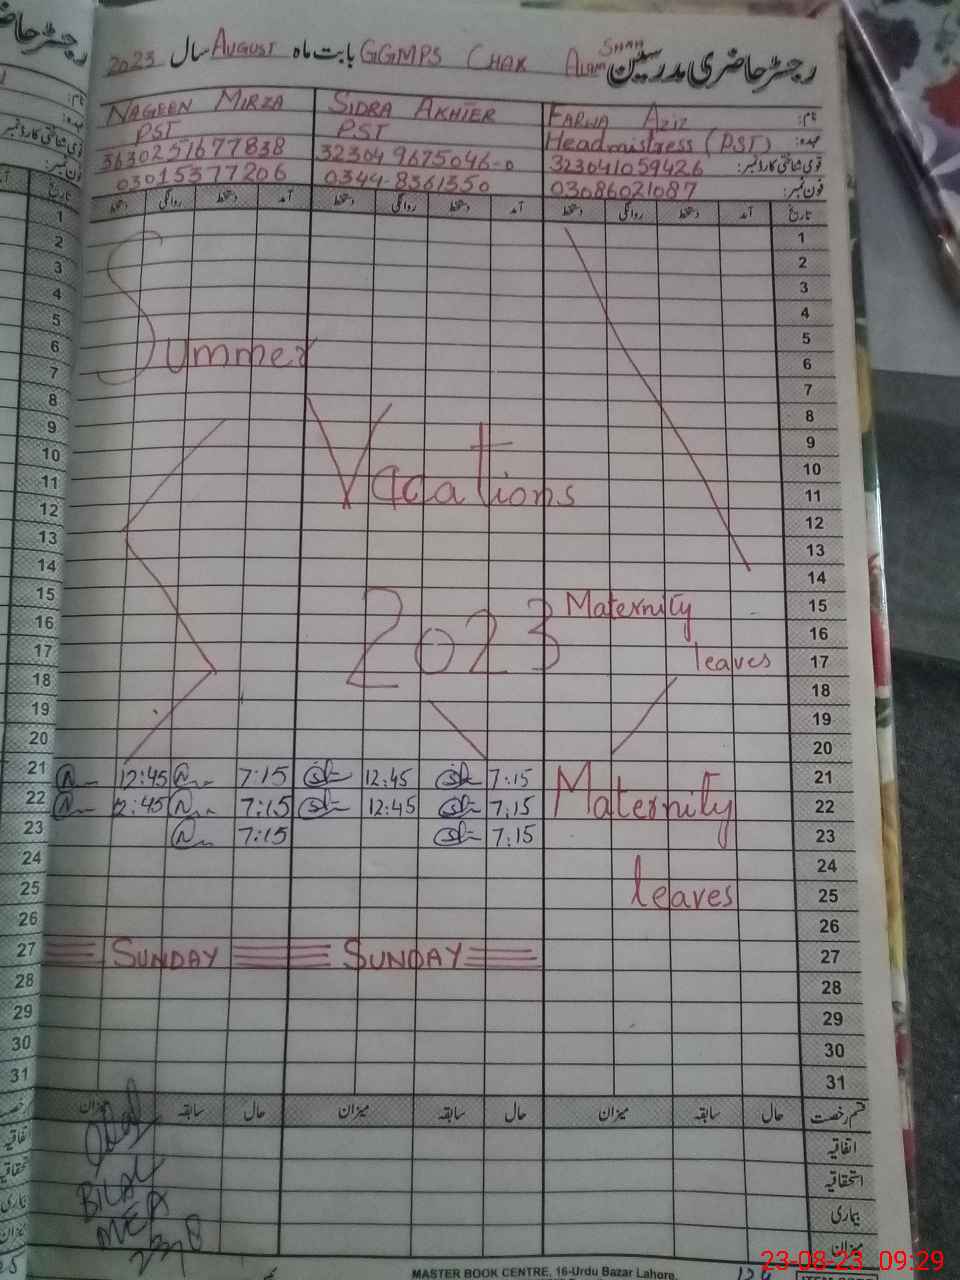 رجسٹر حاضری مدرسین GGMPS CHAK ALAM SHAH بابت ماہ AUGUST سال 2023
نام: FARWA AZIZ SIDRA AKHTER NAGEEN MIRZA
عہدہ: Headmistress (PST) PST PST
قومی شناختی کارڈ نمبر: 323041059426 32304 9675046-0 3630251677838
فون نمبر: 03086021087 0344-8361550 03015377206
تاریخ آمد دستخط روانگی دستخط آمد دستخط روانگی دستخط آمد دستخط روانگی دستخط
1
2
3
4
5
6
7
Summer
8
9
10
11
Vacations
12
13
14
15
Maternity
16
2023
17
leaves
18
19
20
21 7:15 12:45 7:15 12:45
22 7:15 12:45 7:15 12:45
Maternity
23 7:15 7:15
24
25
leaves
26
27 SUNDAY SUNDAY
28
29
30
31
قسم رخصت حال سابقہ میزان حال سابقہ میزان حال سابقہ میزان
اتفاقیہ
استحقاقیہ
بیماری
میزان
BILAL
MEA
MASTER BOOK CENTRE, 16-Urdu Bazar Lahore.
23-08-23 09:29